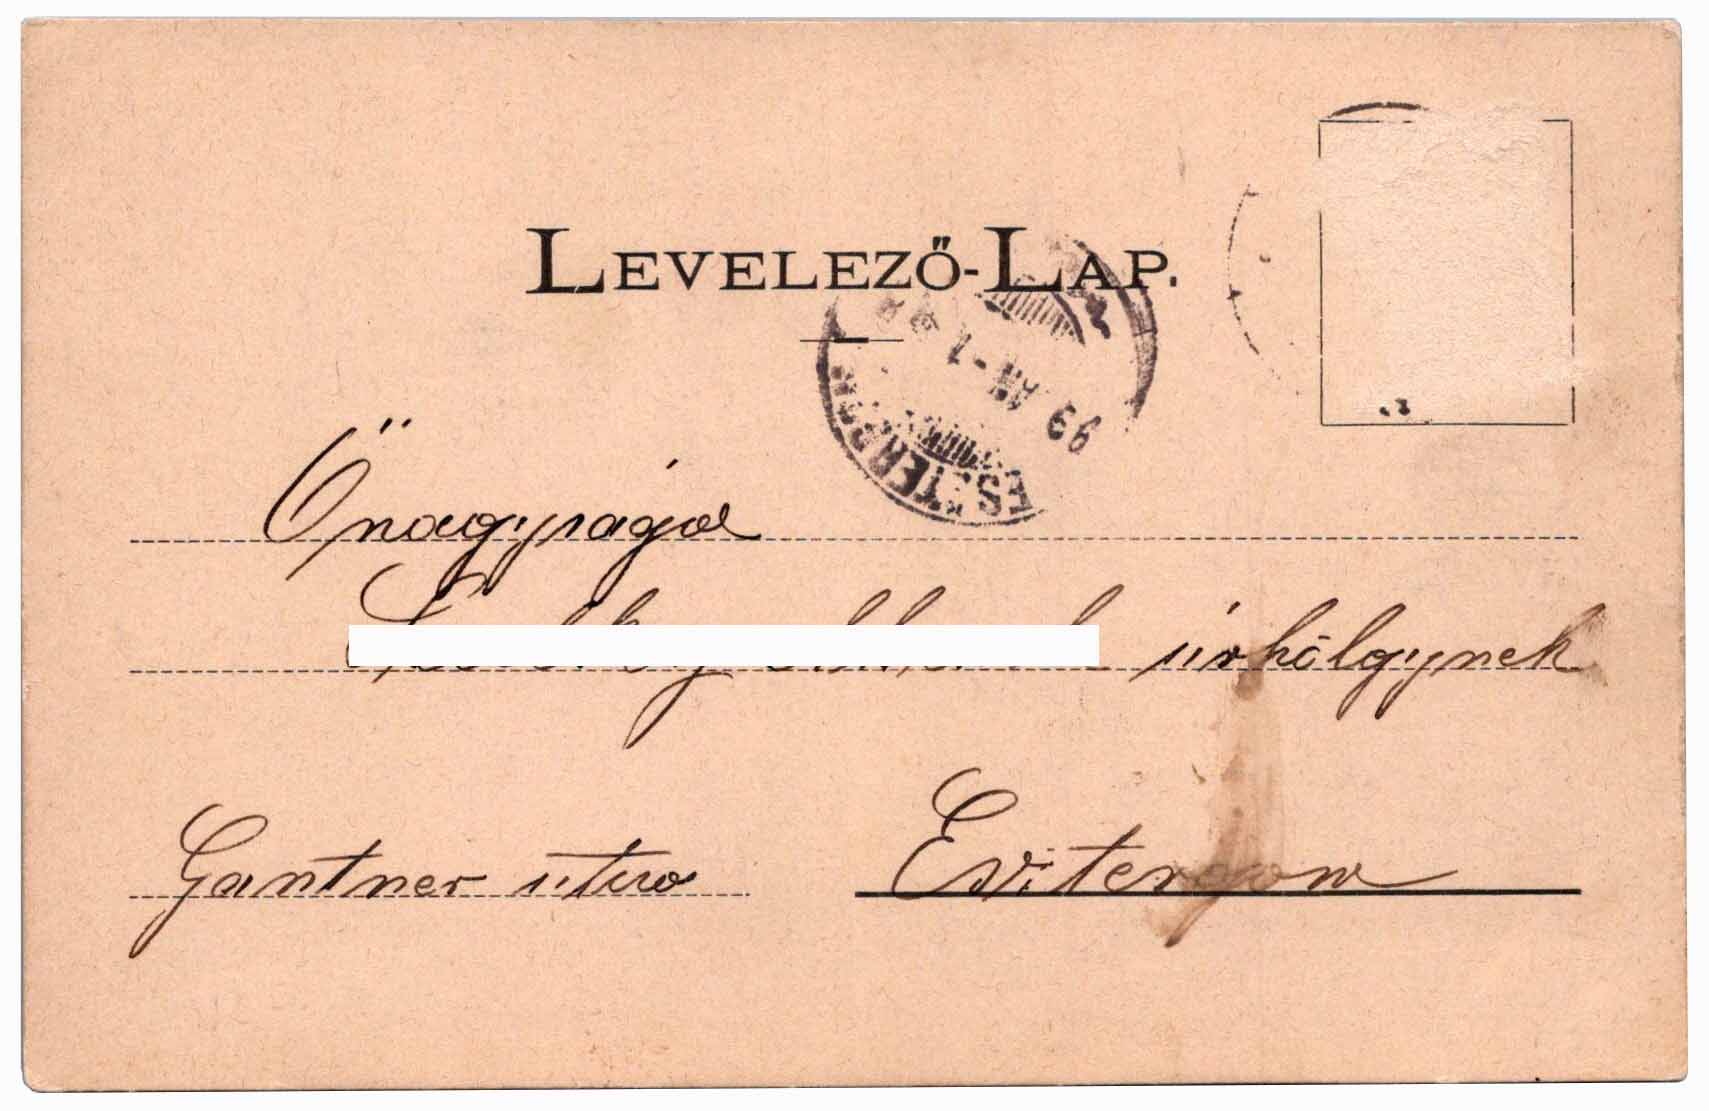 LEVELEZŐ-LAP.
99 JAN -1
ESZTERGOM
Önagysága
úrhölgynek
Gantner utca
Esztergom